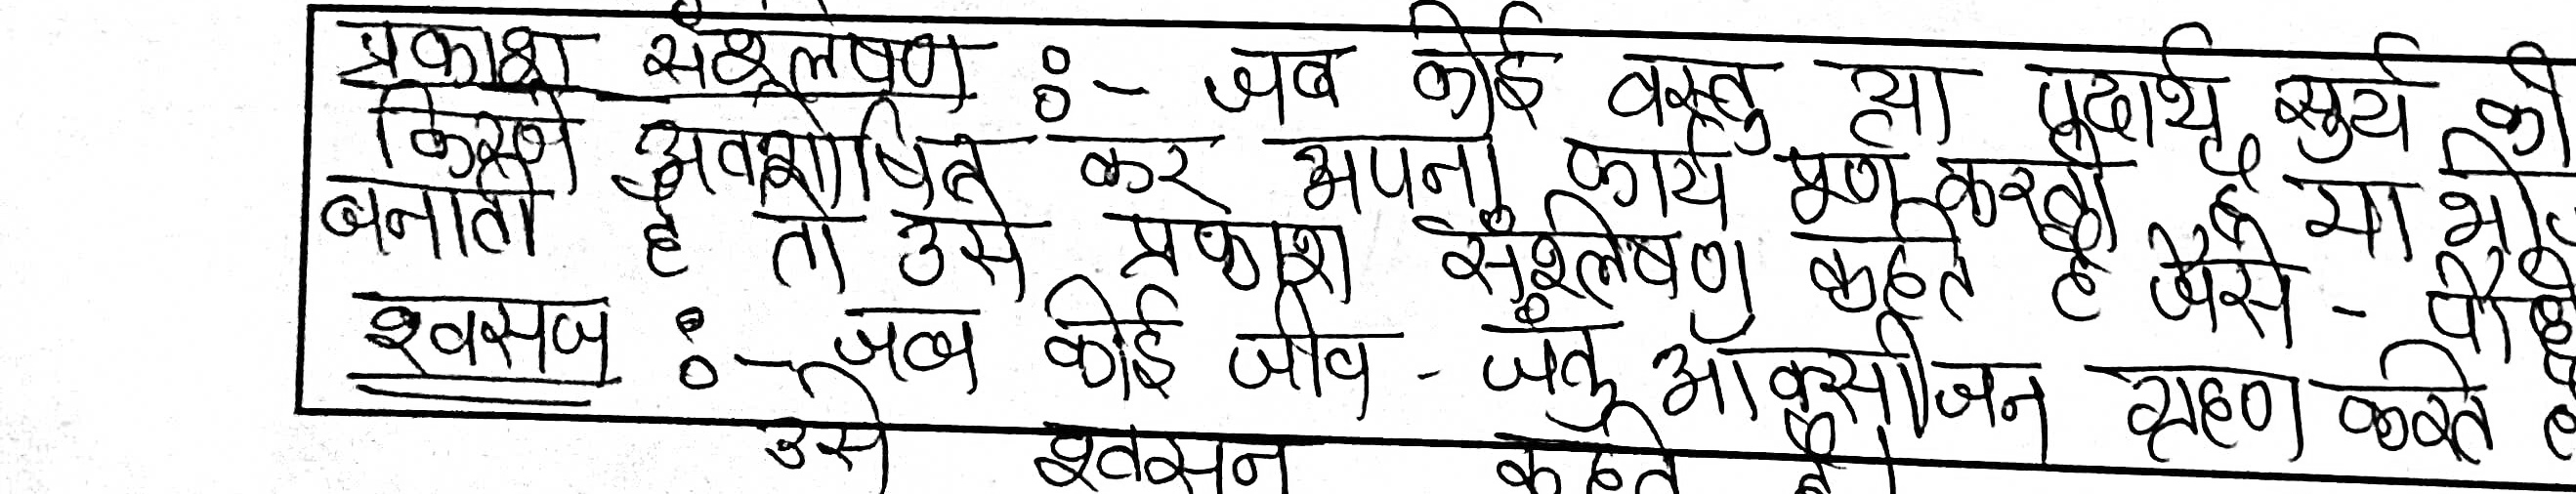 प्रकाश संश्लेषण :- जब कोई वस्तु या पदार्थ सुर्य की
किरणे अवशोषित कर अपना कार्य पूर्ण करती है या
बनाती है तो उसे प्रकाश संश्लेषण कहते है जैसे -
श्वसन :- जब कोई जीव - जंतु ऑक्सीजन ग्रहण करते
उसे श्वसन कहते है।